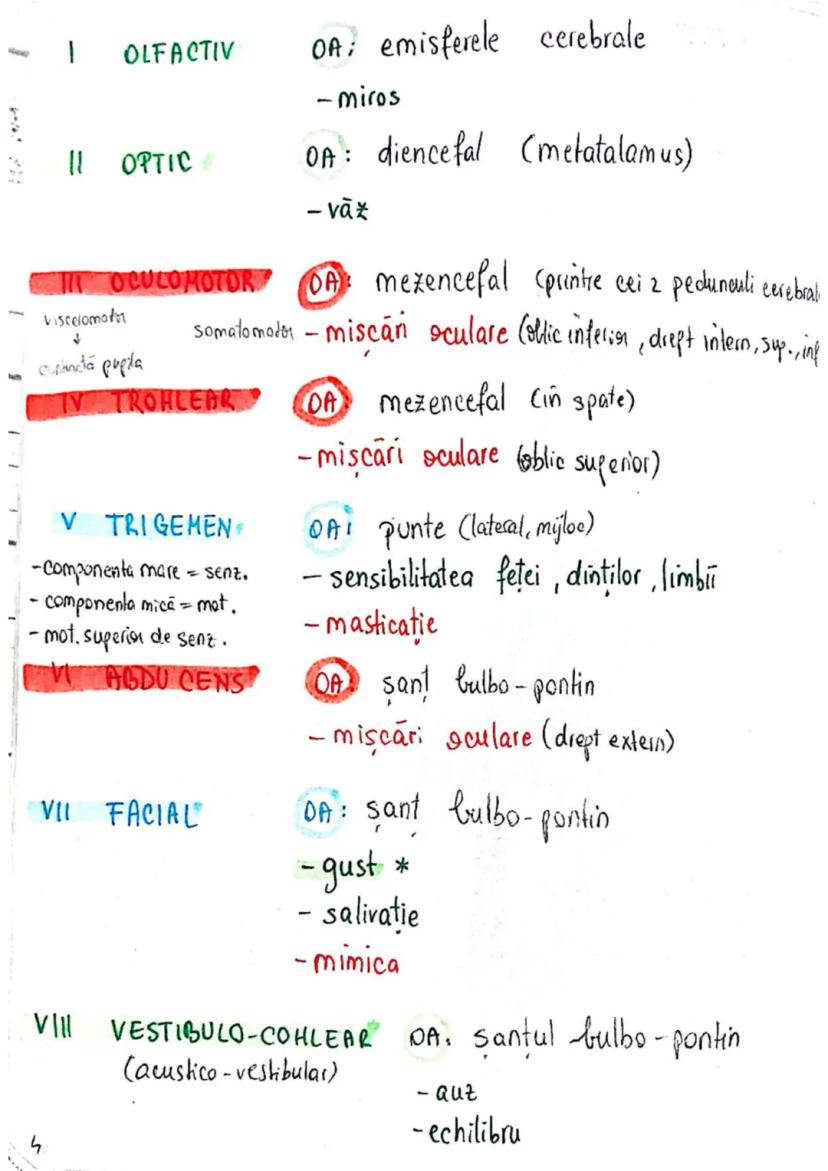 I OLFACTIV OA: emisferele cerebrale
- miros
II OPTIC OA: diencefal (metatalamus)
- văz
III OCULOMOTOR OA: mezencefal (printre cei 2 pedunculi cerebrali
visceromotor
↓
pupila
somatomotor - mișcări oculare (oblic inferior, drept intern, sup., inf
IV TROHLEAR OA: mezencefal (în spate)
- mișcări oculare (oblic superior)
V TRIGEMEN OA: punte (lateral, mijloc)
- componenta mare = senz.
- componenta mică = mot.
- mot. superior de senz.
- sensibilitatea feței, dinților, limbii
- masticație
VI ABDUCENS OA: șanț bulbo-pontin
- mișcări oculare (drept extern)
VII FACIAL OA: șanț bulbo-pontin
- gust *
- salivație
- mimica
VIII VESTIBULO-COHLEAR OA: șanțul bulbo-pontin
(acustico-vestibular)
- auz
- echilibru
4